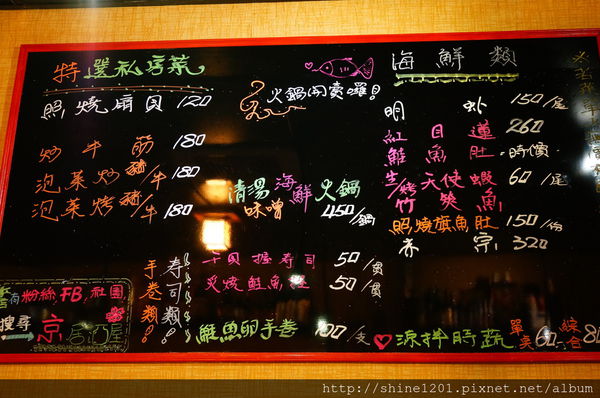 特選私房菜
照燒扇貝 120
炒牛筋 180
泡菜炒豬/牛 180
泡菜烤豬/牛 180
火鍋開賣囉!
清湯海鮮火鍋
味噌 450/鍋
海鮮類
明蝦 150/尾
紅目蓮 260
鮭魚肚 時價
生/烤天使蝦 60/尾
竹筴魚
照燒旗魚肚 150/份
赤宗 320
壽司類
手卷類!
干貝握壽司 50/貫
炙燒鮭魚肚 50/貫
鮭魚卵手卷 100/支
涼拌時蔬 單芙60 綜合80
有粉絲FB,社團
搜尋 京居酒屋
http://shine1201.pixnet.net/album